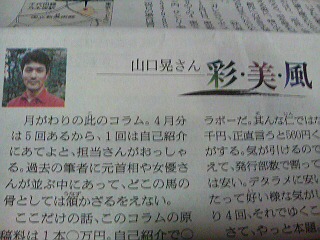 山口晃さん
彩・美・風
月がわりの此のコラム。4月分
は5回あるから、1回は自己紹介
にあてよと、担当さんがおっしゃ
る。過去の筆者に元首相や女優さ
んが並ぶ中にあって、どこの馬の
骨としては頷かざるをえない。
ここだけの話、このコラムの原
稿料は1本○万円。自己紹介で○
ラボーだ。其んな
千円、正直言うと560円く
がする。気が引けるので
えて、発行部数で割って
は安い。デタラメに安い
たって好い様な気が
り4回、それでゆくこ
さて、やっと本題